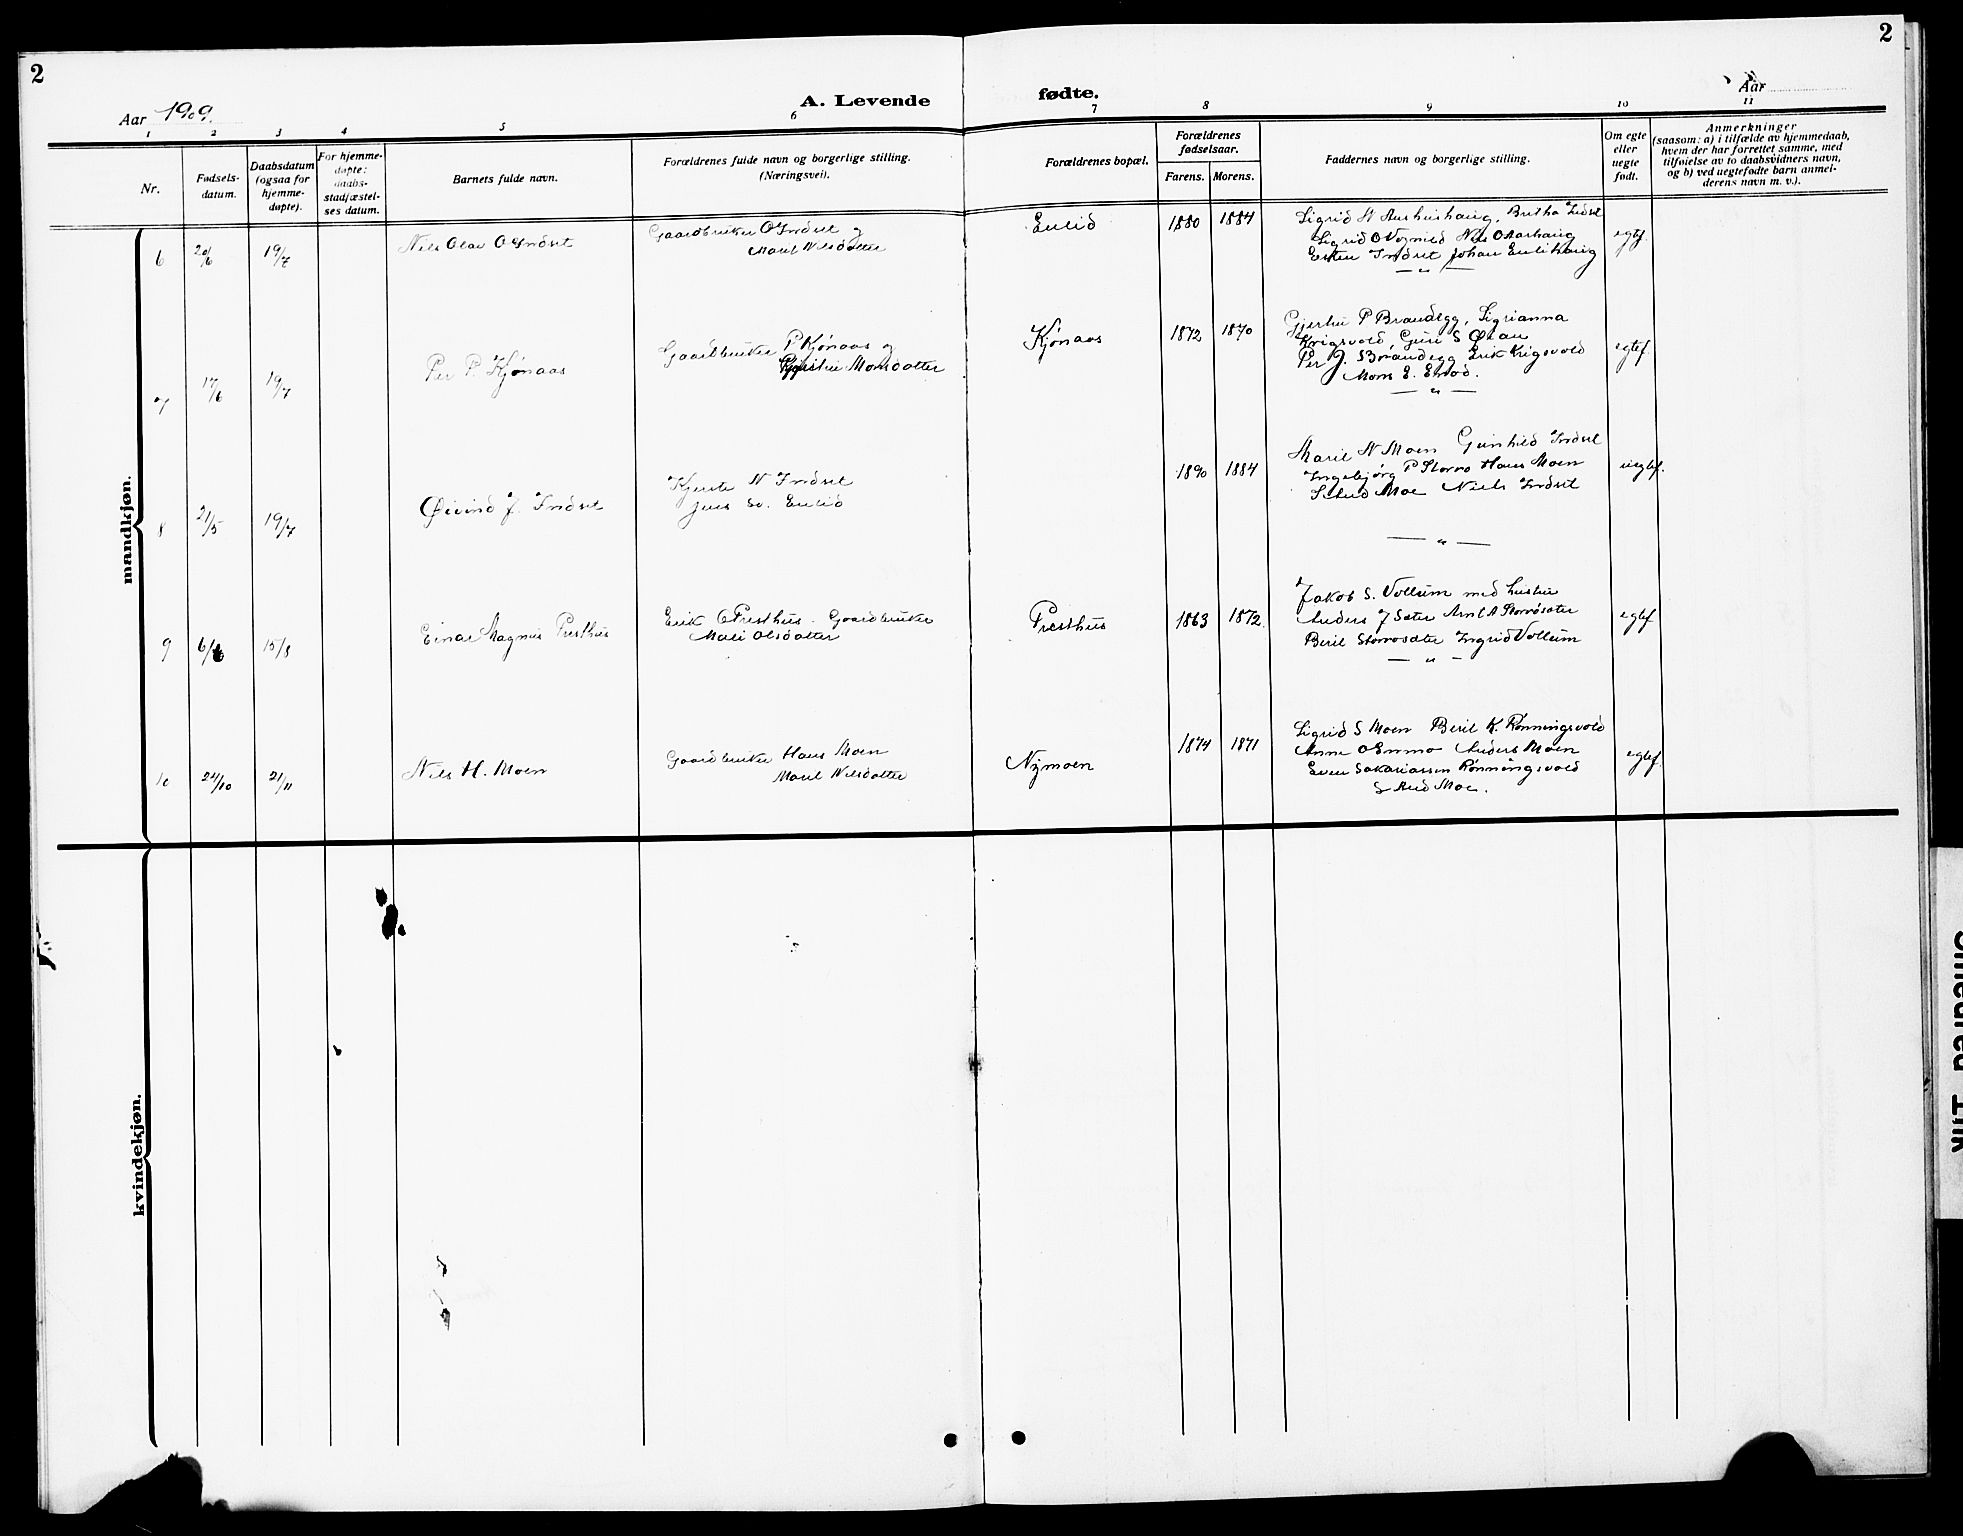 2
2
Aar 1909.
A. Levende fødte.
Aar
1 2 3 4 5 6 7 8 9 10 11
Nr.
Fødsels-
datum.
Daabsdatum
(ogsaa for
hjemme-
døpte).
For hjemme-
døpte:
daabs-
stadfæstel-
ses datum.
Barnets fulde navn.
Forældrenes fulde navn og borgerlige stilling.
(Næringsvei).
Forældrenes bopæl.
Forældrenes
fødselsaar.
Farens. Morens.
Faddernes navn og borgerlige stilling.
Om egte
eller
uegte
født.
Anmerkninger
(saasom: a) i tilfælde av hjemmedaab,
hvem der har forrettet samme, med
tilføielse av to daabsvidners navn,
og b) ved uegtefødte barn anmel-
derens navn m. v.).
mandkjøn.
6 20/6 19/7 Nils Olav O Indset
Gaardbruker O Indset og
Marit Nilsdatter
Eulid 1880 1884
Sigrid N Aushushaug, Britha Indset
Sigrid O Nils O Aarhaug
Esten Indset Johan Eulihaug
— " —
egtef.
7 17/6 19/7 Per P. Kjønaas
Gaardbruker P Kjønaas og
Kjerstie Monsdatter
Kjønaas 1872 1870
Gjertie P Brandegg, Sigrianna
Krigsvold, Guri S Øian
Per J. Brandegg Erik Krigsvold
Mons E. Estad.
— " —
egtef.
8 21/5 19/7 Øivind J. Indset
Kjersti N Indset
Jens Sv. Eulid
1890 1884
Marit N Moen Gunhild Indset
Ingebjørg P Storro Hans Moen
Moe Niels Indset
— " —
uegtef.
9 6/6 15/8 Einar Magnus Presthus
Erik O Presthus. Gaardbruker
Mali Olsdatter
Presthus 1863 1872
Jakob S. Vollum med hustru
Anders J Sæter Arnt A Storrosæter
Beril Storrosæter Ingrid Vollum
— " —
egtef
10 24/10 21/11 Nils H. Moen
Gaardbruker Hans Moen
Marit Nilsdatter
Nymoen 1874 1871
Sigrid S Moen Beril K. Rønningsvold
Anne O Emmo Anders Moen
Even Sakariassen Rønningsvold
Moe.
egtef.
kvindekjøn.